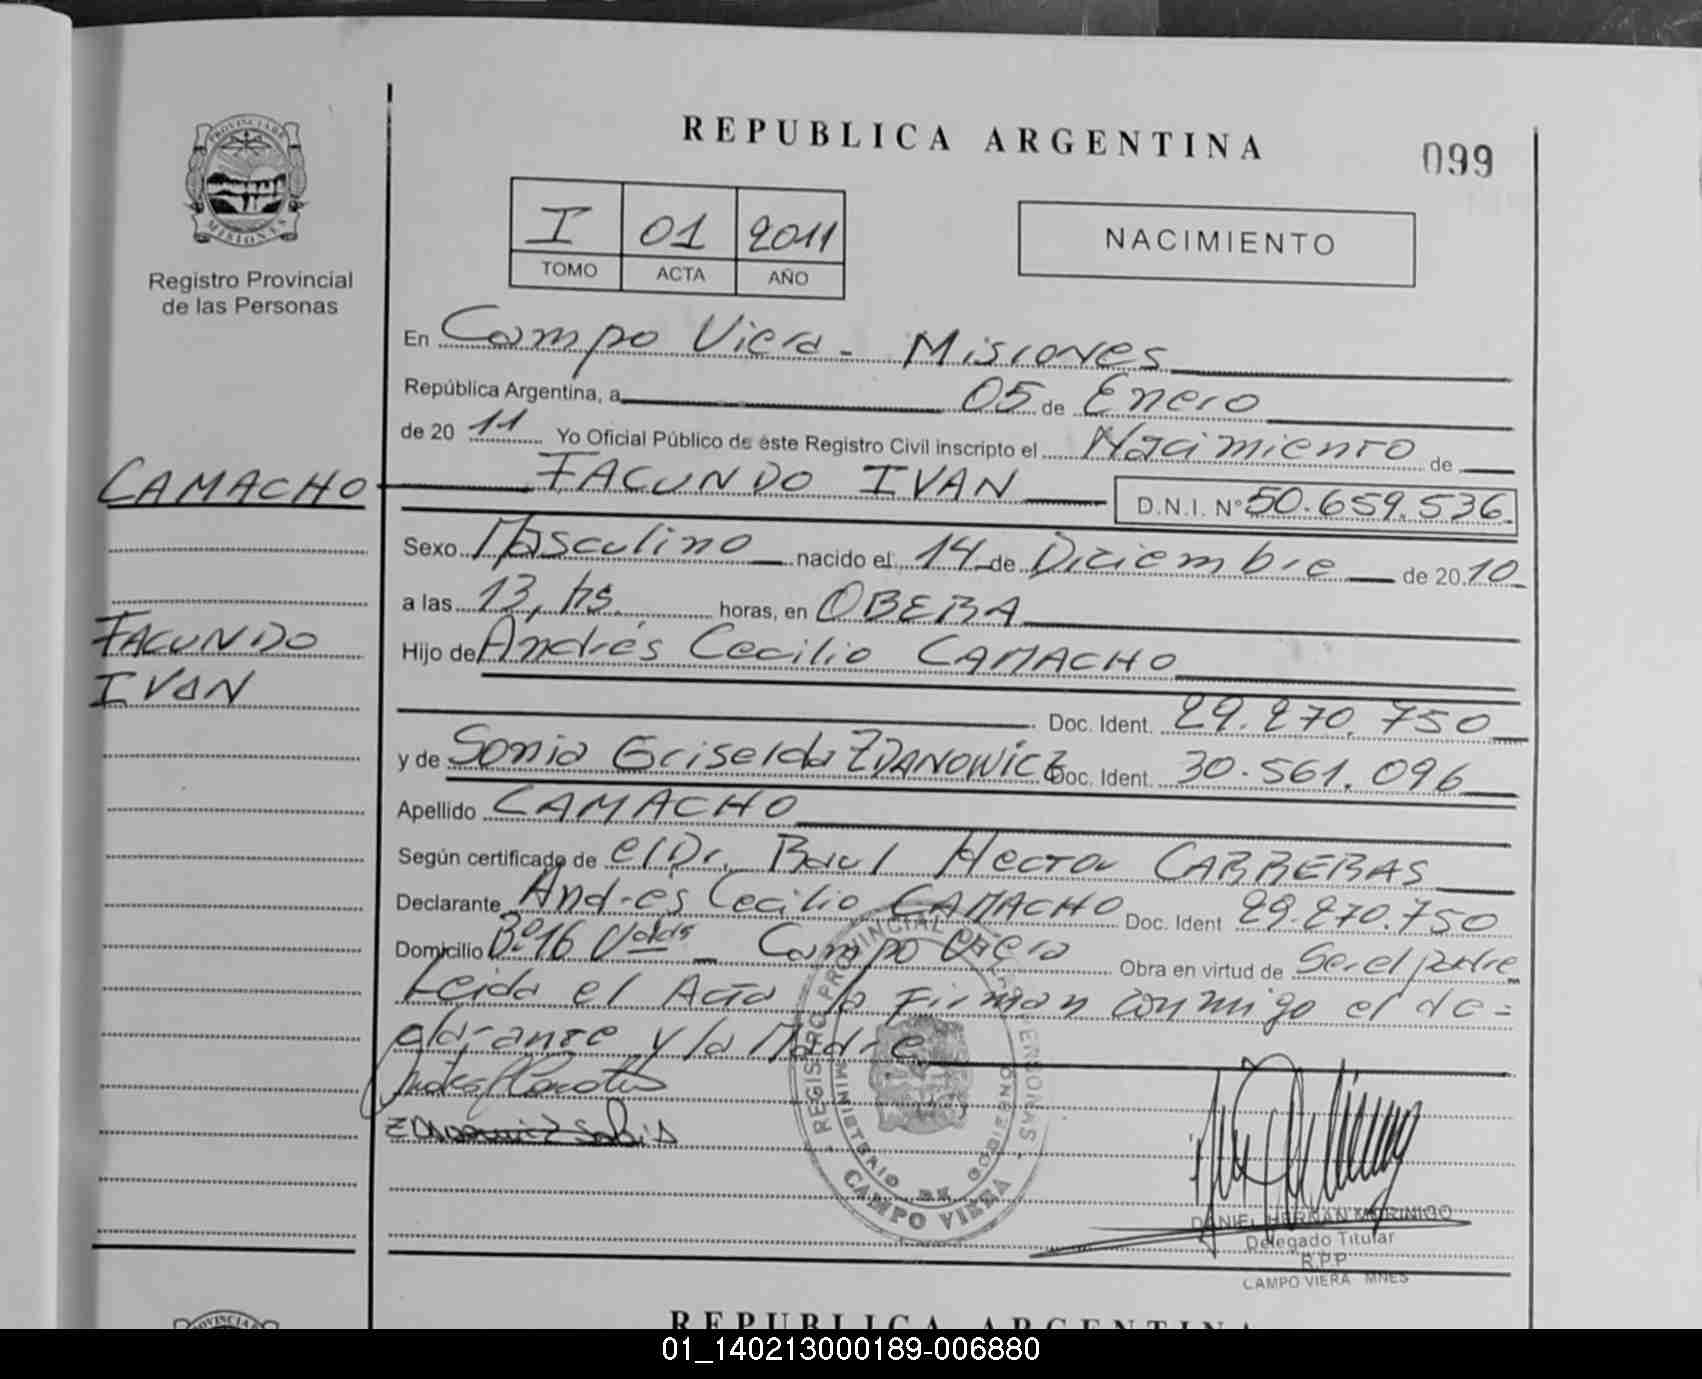 REPUBLICA ARGENTINA
099
PROVINCIA DE
MISIONES
Registro Provincial
de las Personas
I 01 2011
TOMO ACTA AÑO
NACIMIENTO
En Campo Viera - Misiones
República Argentina, a 05 de Enero
de 20 11 Yo Oficial Público de éste Registro Civil inscripto el Nacimiento de
CAMACHO FACUNDO IVAN D.N.I. Nº 50.659.536
Sexo Masculino nacido el 14 de Diciembre de 20 10
a las 13, hs. horas, en OBERA
FACUNDO
IVAN
Hijo de Andrés Cecilio CAMACHO
Doc. Ident. 29.270.750
y de Sonia Griselda ZDANOWICZ Doc. Ident. 30.561.096
Apellido CAMACHO
Según certificado de el Dr. Raul Hector CARRERAS
Declarante Andres Cecilio CAMACHO Doc. Ident 29.270.750
Domicilio Bº 16 Campo Viera Obra en virtud de Ser el padre
Leida el Acta la Firman conmigo el de=
clarante y la Madre
REGISTRO PROVINCIAL DE LAS PERSONAS
MINISTERIO DE GOBIERNO
CAMPO VIERA
DANIEL HERNAN MORINIGO
Delegado Titular
R.P.P
CAMPO VIERA MNES
PROVINCIA DE
REPUBLICA ARGENTINA
01_140213000189-006880